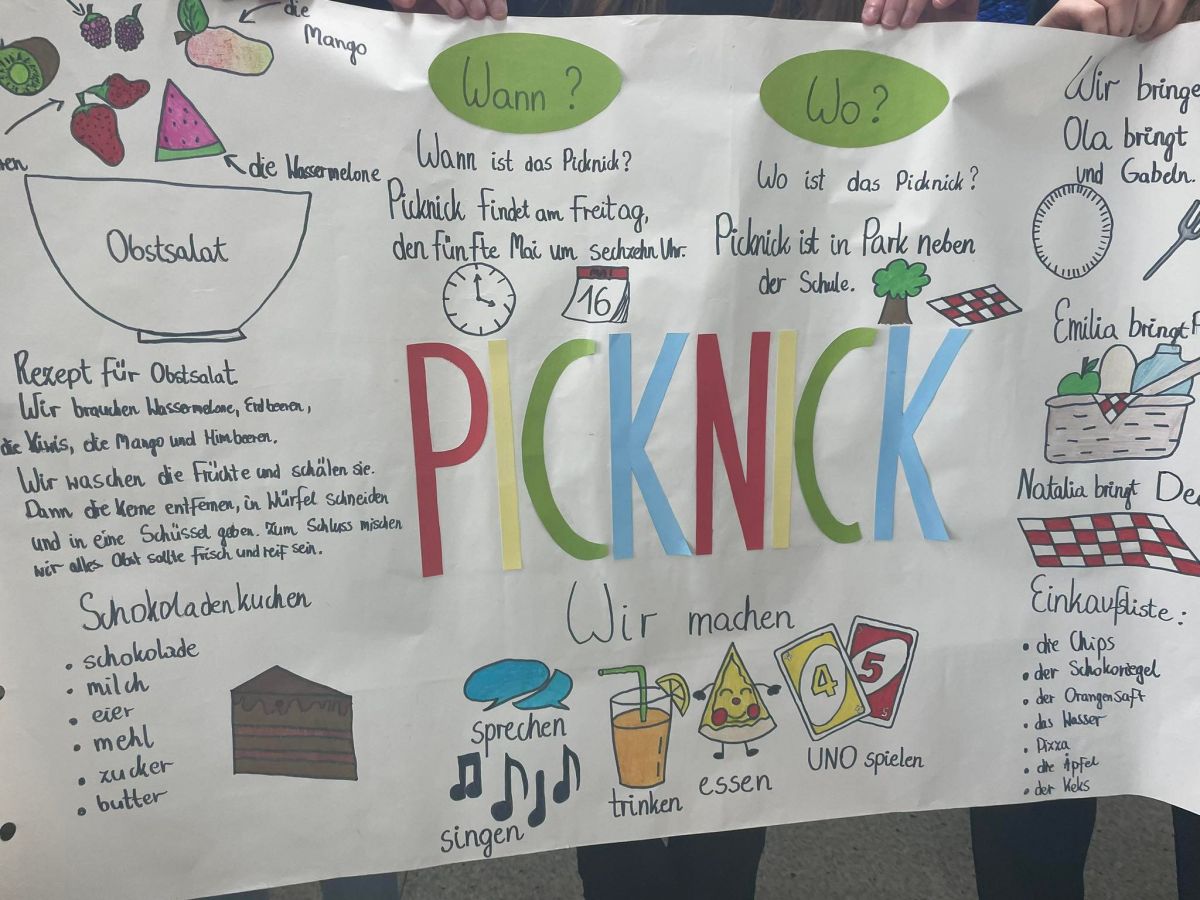 die
Mango
die Wassermelone
Obstsalat
Rezept für Obstsalat.
Wir brauchen Wassermelone, Erdbeeren,
die Kiwis, die Mango und Himbeeren.
Wir waschen die Früchte und schälen sie.
Dann die Kerne entfernen, in Würfel schneiden
und in eine Schüssel geben. Zum Schluss mischen
wir alles Obst sollte frisch und reif sein.
Schokoladenkuchen
• schokolade
• milch
• eier
• mehl
• zucker
• butter
Wann?
Wann ist das Picknick?
Picknick findet am Freitag,
den fünfte Mai um sechzehn Uhr.
MAI
16
Wo?
Wo ist das Picknick?
Picknick ist in Park neben
der Schule.
PICKNICK
Wir machen
sprechen
singen
trinken
essen
4
5
5
UNO spielen
Wir
Ola bringt
und Gabeln.
Emilia bringt
Natalia bringt
Einkaufsliste:
• die Chips
• der Schokoriegel
• der Orangensaft
• das Wasser
• Pizza
• die Äpfel
• der Keks